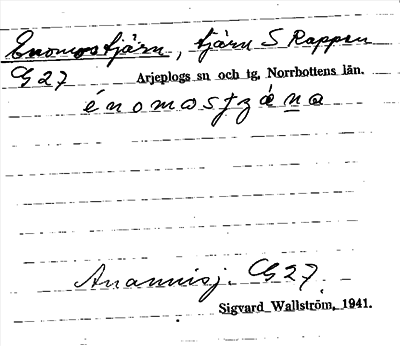 Enomostjärn, tjärn S Rappen
G 27 Arjeplogs sn och tg, Norrbottens län.
énomostzǽna
Anamnisj. G 27.
Sigvard Wallström, 1941.